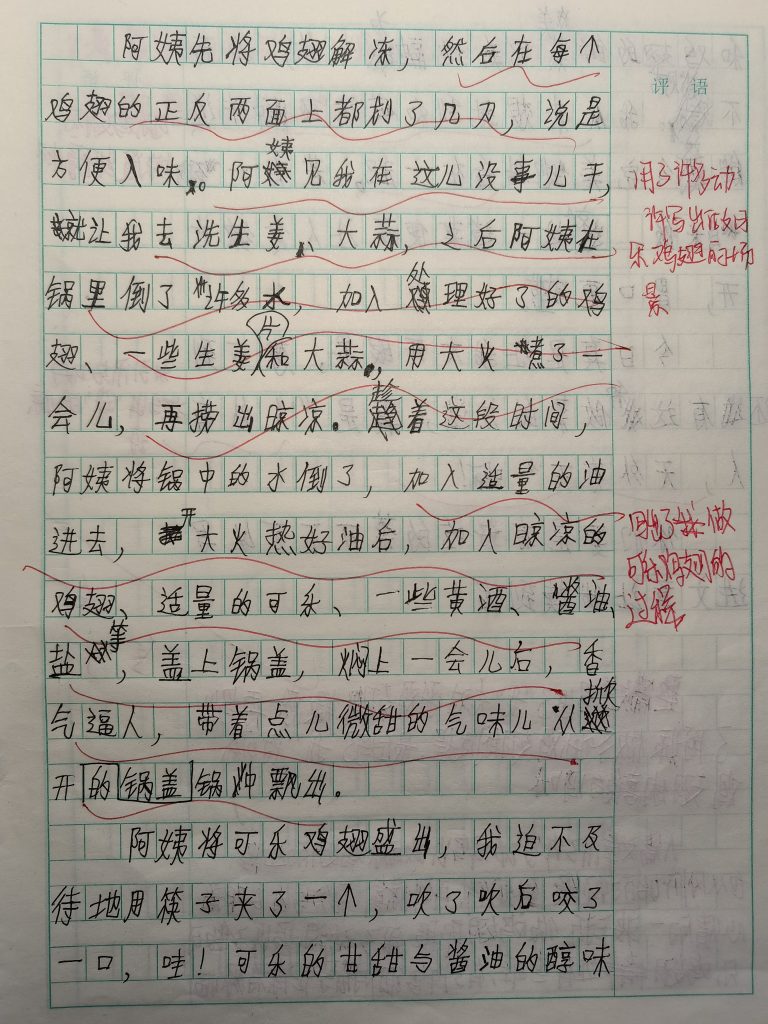 阿姨先将鸡翅解冻，然后在每个
评语
鸡翅的正反两面上都划了几刀，说是
方便入味。阿姨见我在这儿没事儿干，
就让我去洗生姜、大蒜，之后阿姨在
锅里倒了许多水，加入处理好了的鸡
翅、一些生姜片和大蒜，用大火煮了一
会儿，再捞出晾凉。趁着这段时间，
阿姨将锅中的水倒了，加入适量的油
进去，开大火热好油后，加入晾凉的
鸡翅、适量的可乐、一些黄酒、酱油、
盐等，盖上锅盖，焖上一会儿后，香
气逼人，带着点儿微甜的气味儿从掀
开的锅盖锅中飘出。
阿姨将可乐鸡翅盛出，我迫不及
待地用筷子夹了一个，吹了吹后咬了
一口，哇！可乐的甘甜与酱油的醇味
用了许多动
词写出做可
乐鸡翅的场
景
写出了做
可乐鸡翅的
过程